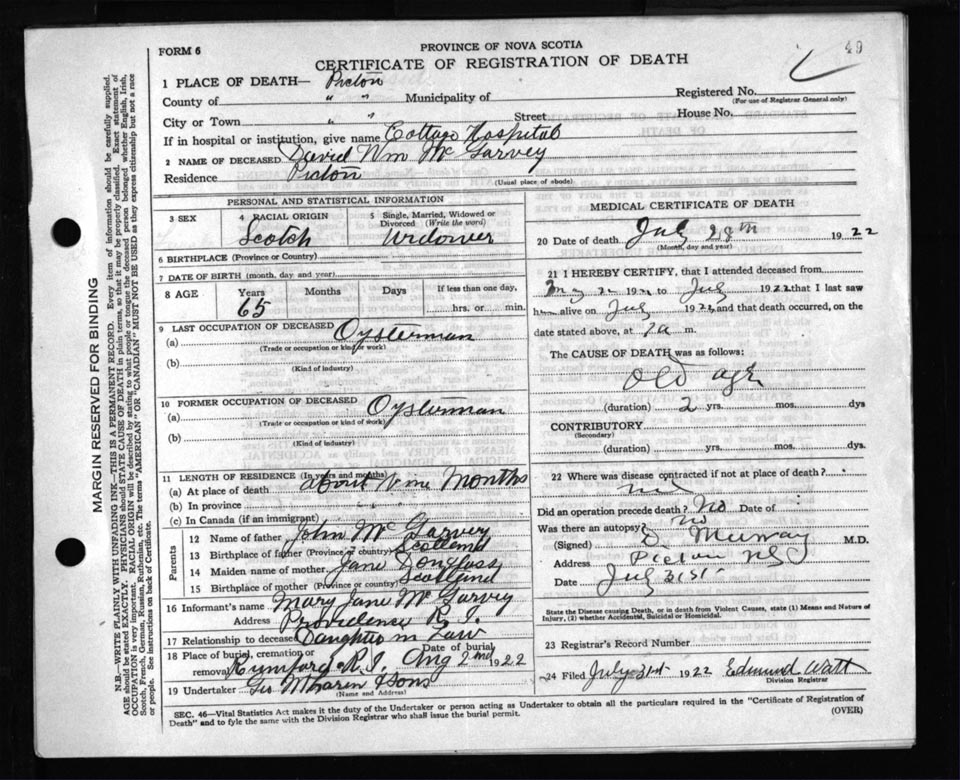 49
FORM 6
PROVINCE OF NOVA SCOTIA
CERTIFICATE OF REGISTRATION OF DEATH
1 PLACE OF DEATH— Pictou
County of " " Municipality of Registered No.
(For use of Registrar General only)
City or Town " " Street House No.
If in hospital or institution, give name Cottage Hospital
2 NAME OF DECEASED David Wm McGarvey
Residence Pictou
(Usual place of abode)
PERSONAL AND STATISTICAL INFORMATION
3 SEX 4 RACIAL ORIGIN Scotch 5 Single, Married, Widowed or Divorced (Write the word) Widower
6 BIRTHPLACE (Province or Country)
7 DATE OF BIRTH (month, day and year)
8 AGE Years 65 Months Days If less than one day, hrs. or min.
9 LAST OCCUPATION OF DECEASED Oysterman
(a)
(Trade or occupation or kind of work)
(b)
(Kind of industry)
10 FORMER OCCUPATION OF DECEASED Oysterman
(a)
(Trade or occupation or kind of work)
(b)
(Kind of industry)
11 LENGTH OF RESIDENCE (In years and months)
(a) At place of death About Nine Months
(b) In province " "
(c) In Canada (if an immigrant)
Parents
12 Name of father John McGarvey
13 Birthplace of father (Province or country) Scotland
14 Maiden name of mother Jane Douglass
15 Birthplace of mother (Province or country) Scotland
16 Informant's name Mary Jane McGarvey
Address Providence R.I.
17 Relationship to deceased Daughter in Law
18 Place of burial, cremation or removal Rumford R.I. Date of burial Aug 2nd 1922
19 Undertaker Geo & Sons
(Name and Address)
MEDICAL CERTIFICATE OF DEATH
20 Date of death July 28th 1922
(Month, day and year)
21 I HEREBY CERTIFY, that I attended deceased from
May 1922 to July 1922 that I last saw
him alive on July 1922 and that death occurred, on
date stated above, at m.
The CAUSE OF DEATH was as follows:
Old age
(duration) 2 yrs. mos. dys
CONTRIBUTORY
(Secondary)
(duration) yrs. mos. dys
22 Where was disease contracted if not at place of death?
Did an operation precede death? No Date of
Was there an autopsy? no
(Signed) D. Murray M.D.
Address Pictou N.S.
Date July 31st
State the Disease causing Death, or in death from Violent Causes, state (1) Means and Nature of Injury, (2) whether Accidental, Suicidal or Homicidal.
23 Registrar's Record Number
24 Filed July 31st 1922 Edmund Watt
Division Registrar
SEC. 46—Vital Statistics Act makes it the duty of the Undertaker or person acting as Undertaker to obtain all the particulars required in the "Certificate of Registration of
Death" and to fyle the same with the Division Registrar who shall issue the burial permit.
(OVER)
MARGIN RESERVED FOR BINDING
N.B.—WRITE PLAINLY WITH UNFADING INK—THIS IS A PERMANENT RECORD. Every item of information should be carefully supplied.
AGE should be stated EXACTLY. PHYSICIANS should STATE CAUSE OF DEATH in plain terms, so that it may be properly classified. Exact statement of
OCCUPATION is very important. RACIAL ORIGIN will be described by stating to what people or tongue the deceased person belonged whether English, Irish,
Scotch, French, German, Russian, Ruthenian, etc. The terms "AMERICAN" OR "CANADIAN" MUST NOT BE USED as they express citizenship but not a race
or people. See instructions on back of Certificate.